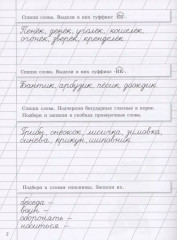 Спиши слова. Выдели в них суффикс ек.
Пенёк, денёк, уголёк, кошелёк,
огонёк, зверёк, кренделёк
Спиши слова. Выдели в них суффикс ик.
Бантик, арбузик, пёсик, дождик
Спиши слова. Подчеркни безударные гласные в корне.
Подбери и запиши к любым проверочные слова.
Грибы, снежок, лисичка, зимовка,
синева, прыжки, шиповник
Подбери к словам синонимы. Запиши их.
беседа –
воин –
оборонять –
находиться –
2